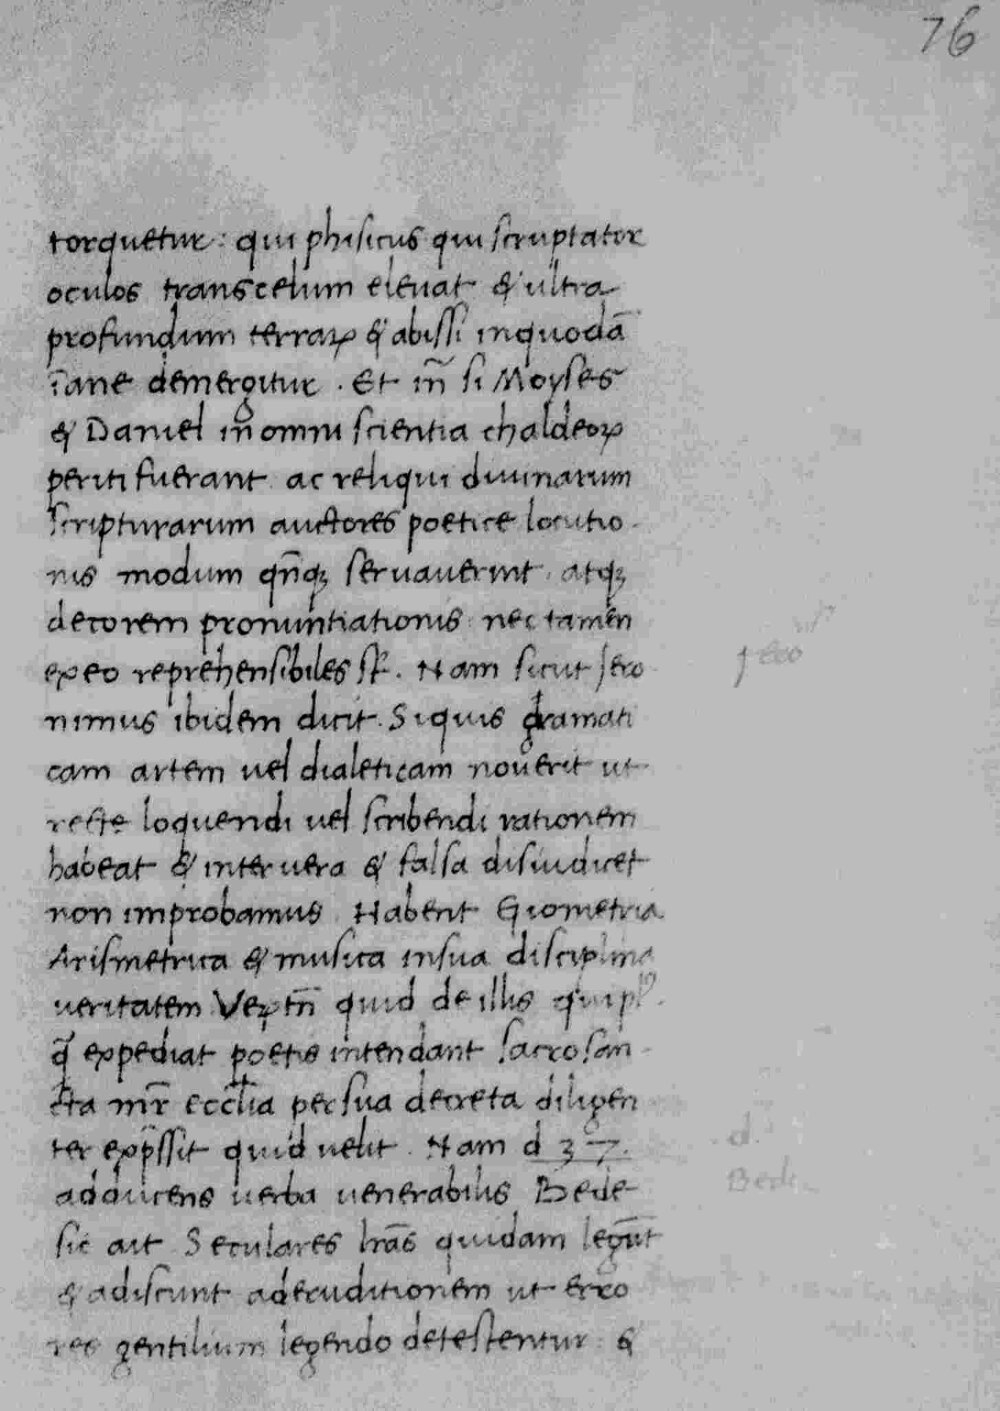 76
torquetur : qui phisicus qui scruptator
oculos trans celum eleuat & ultra
profundum terraꝝ & abissi in quodā
īane demergitur . Et iñ si Moyses
& Daniel in omni scientia chaldeoꝝ
periti fuerant ac reliqui diuinarum
scripturarum auctores poetice locutio-
nis modum qñqꝫ seruauerint . atqꝫ
decorem pronuntiationis nec tamen
ex eo reprehensibiles st̄ . Nam sicut Jero
nimus ibidem dicit . Si quis gramati
cam artem uel dialeticam nouerit ut
recte loquendi uel scribendi rationem
habeat & inter uera & falsa disiudicet
non improbamus . Habent Geometria
Arismetrica & musica in sua disciplina
ueritatem Veꝝ tñ quid de illis
q̄ expediat poetis intendant sacrosan-
cta mr̄ ecclīa per sua decreta diligen
ter exp̄ssit quid uelit . Nam d 37.
adducens uerba uenerabilis Bede
sic ait Seculares lr̄as quidam legūt
& adiscunt ad eruditionem ut erro
res gentilium legendo detestentur &
Jero
d.
Bede